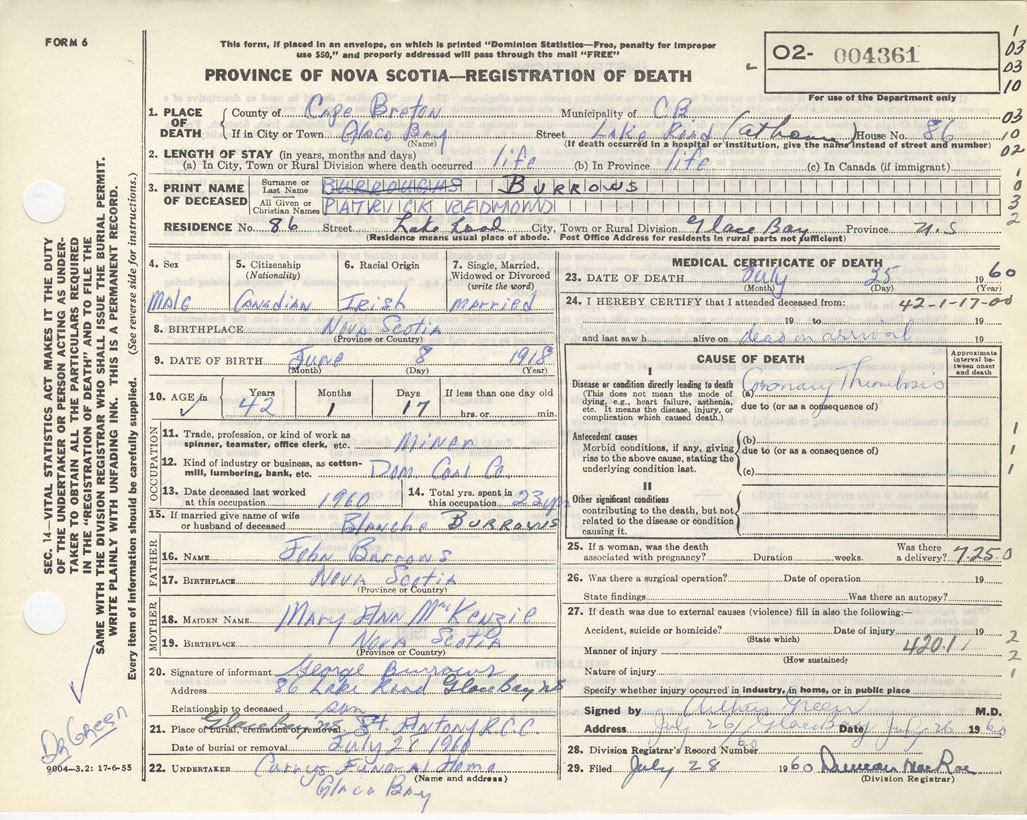 FORM 6
This form, if placed in an envelope, on which is printed "Dominion Statistics—Free, penalty for improper
use $50," and properly addressed will pass through the mail "FREE"
PROVINCE OF NOVA SCOTIA—REGISTRATION OF DEATH
02- 004361
For use of the Department only
1
03
03
10
03
10
02
1. PLACE OF DEATH County of Cape Breton Municipality of C.B.
If in City or Town Glace Bay (Name) Street Lake Road (at home) House No. 86
(If death occurred in a hospital or institution, give the name instead of street and number)
2. LENGTH OF STAY (in years, months and days)
(a) In City, Town or Rural Division where death occurred life (b) In Province life (c) In Canada (if immigrant)
3. PRINT NAME OF DECEASED Surname or Last Name BURROWS
All Given or Christian Names PATRICK REDMOND
RESIDENCE No. 86 Street Lake Road City, Town or Rural Division Glace Bay Province N.S
(Residence means usual place of abode. Post Office Address for residents in rural parts not sufficient)
4. Sex Male
5. Citizenship (Nationality) Canadian
6. Racial Origin Irish
7. Single, Married, Widowed or Divorced (write the word) Married
8. BIRTHPLACE Nova Scotia
(Province or Country)
9. DATE OF BIRTH June 8 1918
(Month) (Day) (Year)
10. AGE in Years 42 Months 1 Days 17 If less than one day old hrs. or min.
OCCUPATION
11. Trade, profession, or kind of work as spinner, teamster, office clerk, etc. Miner
12. Kind of industry or business, as cotton-mill, lumbering, bank, etc. Dom. Coal Co.
13. Date deceased last worked at this occupation 1960
14. Total yrs. spent in this occupation 23 yrs
15. If married give name of wife or husband of deceased Blanche BURROWS
FATHER
16. NAME John Burrows
17. BIRTHPLACE Nova Scotia
(Province or Country)
MOTHER
18. MAIDEN NAME Mary Ann McKenzie
19. BIRTHPLACE Nova Scotia
(Province or Country)
20. Signature of informant George Burrows
Address 86 Lake Road Glace Bay NS
Relationship to deceased son
21. Place of burial, cremation or removal Glace Bay NS St. Antony R.C.C.
Date of burial or removal July 28 1960
22. UNDERTAKER Currys Funeral Home
(Name and address)
Glace Bay
MEDICAL CERTIFICATE OF DEATH
23. DATE OF DEATH July 25 1960
(Month) (Day) (Year)
24. I HEREBY CERTIFY that I attended deceased from: 42-1-17-00
19 to 19
and last saw h alive on dead on arrival 19
CAUSE OF DEATH
Approximate interval between onset and death
I
Disease or condition directly leading to death
(This does not mean the mode of dying, e.g., heart failure, asthenia, etc. It means the disease, injury, or complication which caused death.)
(a) Coronary Thrombosis
due to (or as a consequence of)
Antecedent causes
Morbid conditions, if any, giving rise to the above cause, stating the underlying condition last.
(b)
due to (or as a consequence of)
(c)
II
Other significant conditions
contributing to the death, but not related to the disease or condition causing it.
1
1
1
25. If a woman, was the death associated with pregnancy? Duration weeks. Was there a delivery? 7.25.0
26. Was there a surgical operation? Date of operation 19
State findings Was there an autopsy?
27. If death was due to external causes (violence) fill in also the following:—
Accident, suicide or homicide? (State which) Date of injury 19
Manner of injury 420.1
(How sustained)
Nature of injury
2
2
1
Specify whether injury occurred in industry, in home, or in public place
Signed by Arthur Green M.D.
Address July 26/ Glace Bay Date July 26 1960
28. Division Registrar's Record Number 60
29. Filed July 28 1960 Duncan MacRae
(Division Registrar)
SEC. 14—VITAL STATISTICS ACT MAKES IT THE DUTY
OF THE UNDERTAKER OR PERSON ACTING AS UNDER-
TAKER TO OBTAIN ALL THE PARTICULARS REQUIRED
IN THE "REGISTRATION OF DEATH" AND TO FILE THE
SAME WITH THE DIVISION REGISTRAR WHO SHALL ISSUE THE BURIAL PERMIT.
WRITE PLAINLY WITH UNFADING INK. THIS IS A PERMANENT RECORD.
Every item of information should be carefully supplied. (See reverse side for instructions.)
Dr Green
9004—3.2: 17-6-55